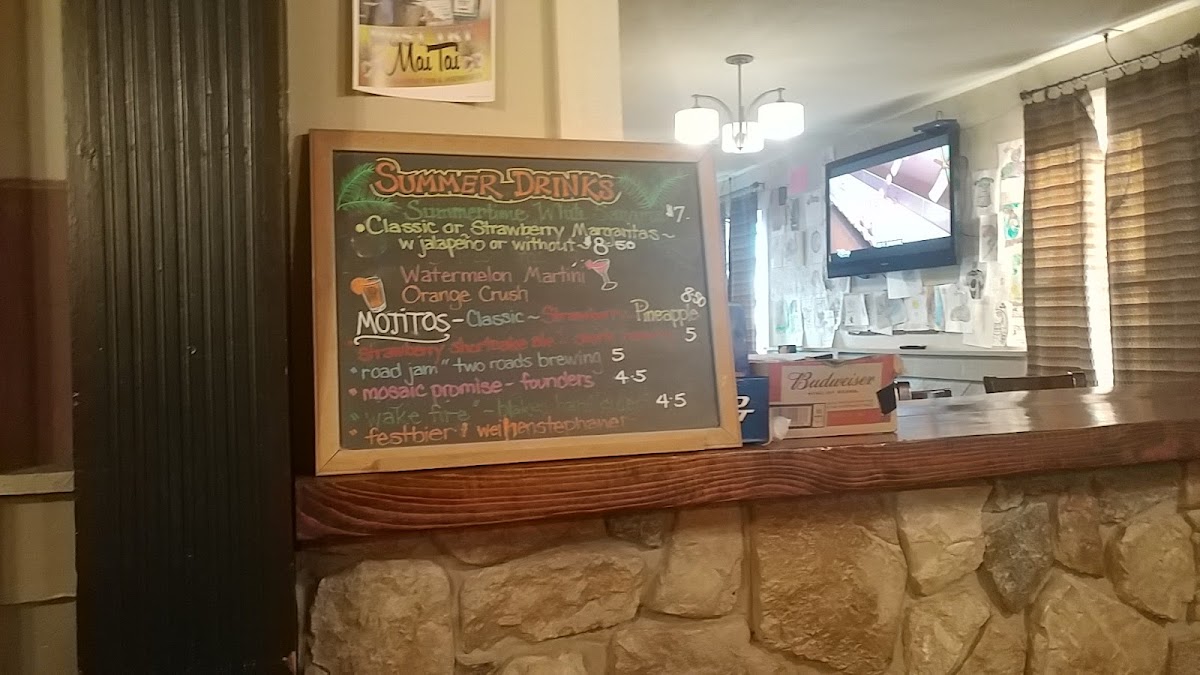 Mai Tai
SUMMER DRINKS
Summertime White $7.
•Classic or Strawberry Margaritas~
w jalapeño or without ~ $8.50
Watermelon Martini
Orange Crush
8.50
MOJITOS - Classic ~ Strawberry Pineapple
"strawberry shortcake ale - 5
"road jam" two roads brewing 5
"mosaic promise - founders 4.5
"wake fire" - 4.5
"festbier" weihenstephaner
Budweiser